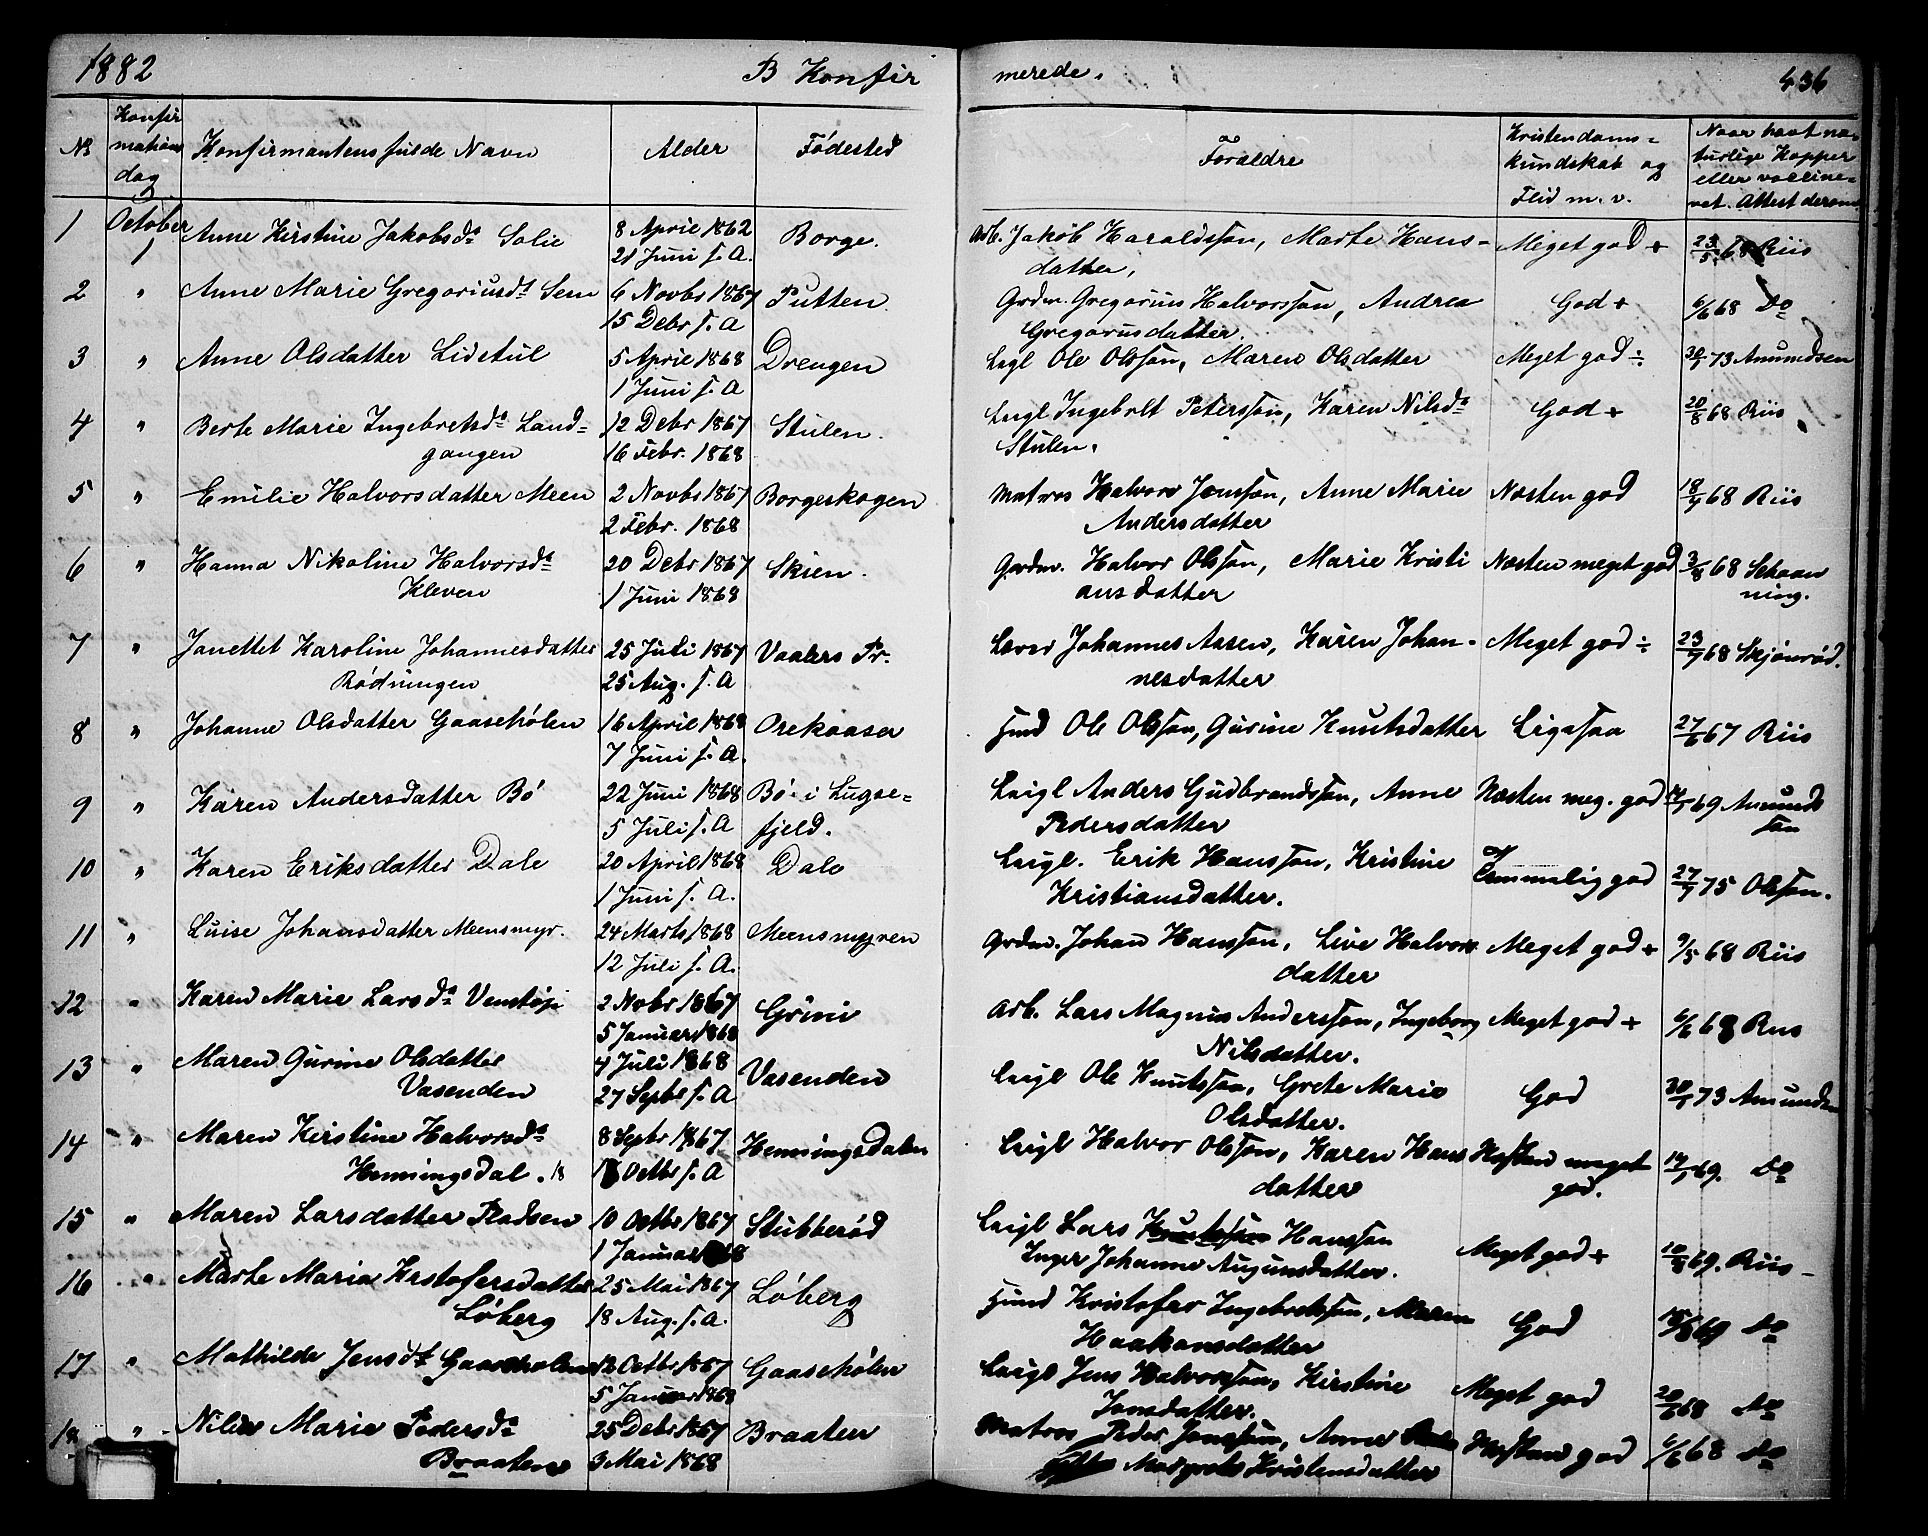 1882 B Konfir merede. 436
No Konfir mations dag Konfirmantens fulde Navn Alder Fødested Foraldre Kristendoms- kundskab og Flid m. v. Naar havt na- turlige Kopper eller vaccine- ret. Attest derom
1 October 1 Anne Kirstine Jakobsda Solie 8 April 1862 21 Juni s. A. Borge. Arb. Jakob Haraldsson, Marte Hans- datter, Meget god + 23/5 68 Riis
2 " Anne Marie Gregoriusdt Sem 6 Novbr 1867 15 Debr s. A Putten Grdm. Gregorius Halvorsson, Andrea Gregorusdatter. God + 6/6 68 Do
3 " Anne Olsdatter Lidetul 5 April 1868 1 Juni s. A Drengen Leigl Ole Olsson, Maren Olsdatter Meget god ÷ 30/1 73 Amundsen
4 " Berte Marie Ingebretsda Land- gangen 12 Debr 1867 16 Febr. 1868 Stulen. Leigl Ingebrlt Petersson, Karen Nilsda Stulen. God + 20/8 68 Riis
5 " Emilie Halvorsdatter Meen 2 Novbr 1867 2 Febr. 1868 Borgeskogen Matros Halvor Jonsson, Anne Marie Andersdatter Næsten god 18/7 68 Riis
6 " Hanna Nikoline Halvorsda Kleven 20 Debr 1867 1 Juni 1868 Skien. Grdm. Halvor Olsson, Marie Kristi ansdatter Næsten meget god 3/8 68 Schaan ning.
7 " Janettet Karoline Johannesdatter Rødningen 25 Juli 1867 25 Aug. s. A Vaalers Pr. Lærer Johannes Aasen, Karen Johan- nesdatter Meget god ÷ 23/7 68 Skjønrød.
8 " Johanne Olsdatter Gaasehølen 16 April 1868 7 Juni s. A. Orekaasa Hmd Ole Olsson, Gurine Knutsdatter Ligesaa 27/6 67 Riis
9 " Karen Andersdatter Bø 22 Juni 1868 5 Juli s. A Bø i Luxe- fjeld. Leigl Anders Gudbrandsson, Anne Pedersdatter Næsten meg. god 14/1 69 Amunds son
10 " Karen Eriksdatter Dale 20 April 1868 1 Juni s. A. Dale Leigl. Erik Hansson, Kristine Kristiansdatter. Temmelig god 27/7 75 Olsson.
11 " Luise Johansdatter Meensmyr. 24 Marts 1868 12 Juli s. A. Meensmyren Grdm. Johan Hansson, Live Halvors datter Meget god + 9/5 68 Riis
12 " Karen Marie Larsda Venstøp 2 Nobr 1867 5 Januar 1868 Grini Arb. Lars Magnus Andersson, Ingeborg Nilsdatter. Meget god + 6/6 68 Riis
13 " Maren Gurine Olsdatter Vasenden 4 Juli 1868 27 Septbr s. A Vasenden Leigl Ole Knutsson, Grete Marie Olsdatter. God 30/1 73 Amundsen
14 " Maren Kirstine Halvorsda Henningsdal. 18 8 Septbr 1867 Octbr s. A Henningsdalen Leigl Halvor Olsson, Karen Hans datter Næsten meget god. 14/1 69. Do
15 " Maren Larsdatter Pladsen 10 Octbr 1867 1 Januar 1868 Stubberød Leigl Lars Knutsson Hansson Inger Johanne Augunsdatter. Meget god + 10/8 69. Riis
16 " Marte Maria Kristofersdatter Løberg 25 Mai 1867 18 Aug. s. A. Løberg Hmd Kristofer Ingebretsson, Maren Haakonsdatter God 69 Do
17 " Mathilde Jensdt Gaaseholmen 12 Octbr 1867 5 Januar 1868 Gaasehølen Leigl Jens Halvorsson, Kirstine Jonsdatter. Meget god 20/6 68 Do
18 " Nilde Marie Pedersda Braaten 25 Debr 1867 3 Mai 1868 Braaten Matros Peder Jonsson, Anne Margrete Kristensdatter Næsten god 6/6 68 Do